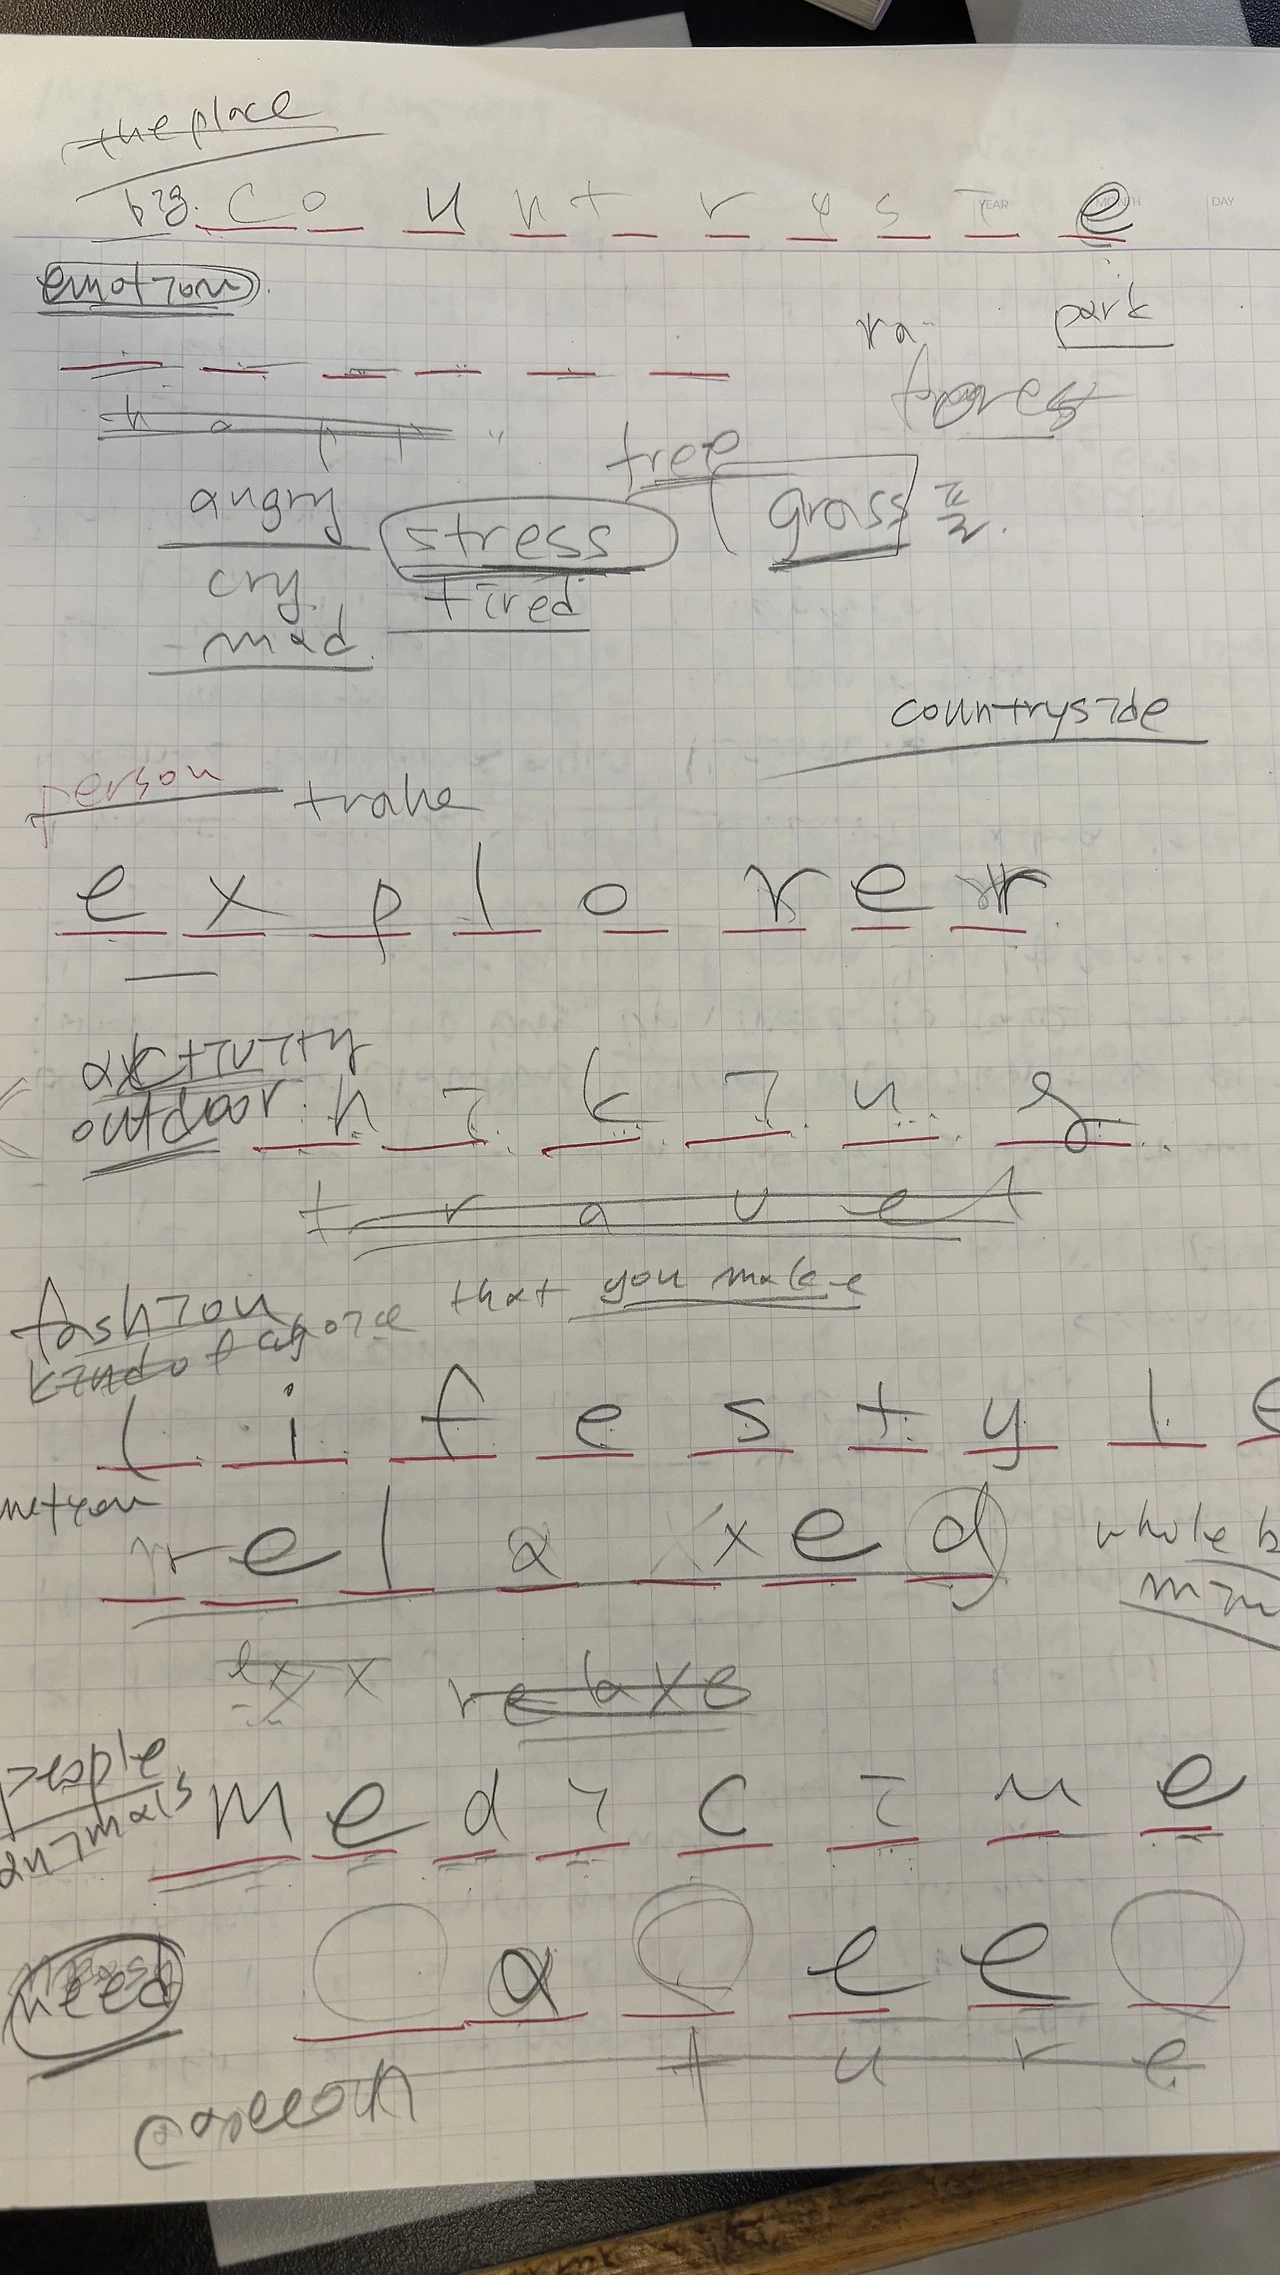 the place
big. C o u n t r y s i e
YEAR MONTH DAY
emotion
park
ra
fores
h a p p y
tree
angry
stress
grass 풀.
cry
tired
mad
countryside
person
e x p l o r e r
activity
outdoor h i k i n g
t r a v e l
fashion that you make
kind of
l i f e s t y l e
r e l a x e d
whole b
ex x relaxe
people
animals
m e d i c i n e
need
a e e
t u r e